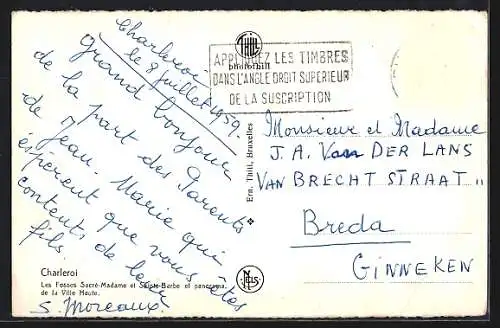 Charleroi
le 8 juillet 1959.
Grand bonjour
de la part des Parents
de Jean-Marie qui
espèrent que vous êtes
contents de leur
fils
S. Moreaux.
THILL
photothill
APPLIQUEZ LES TIMBRES
DANS L'ANGLE DROIT SUPERIEUR
DE LA SUSCRIPTION
Ern. Thill, Bruxelles
Monsieur et Madame
J. A. Van DER LANS
VAN BRECHT STRAAT "
Breda
GINNEKEN
Charleroi
Les Fosses Sacré-Madame et Sainte-Barbe et panorama
de la Ville Haute.